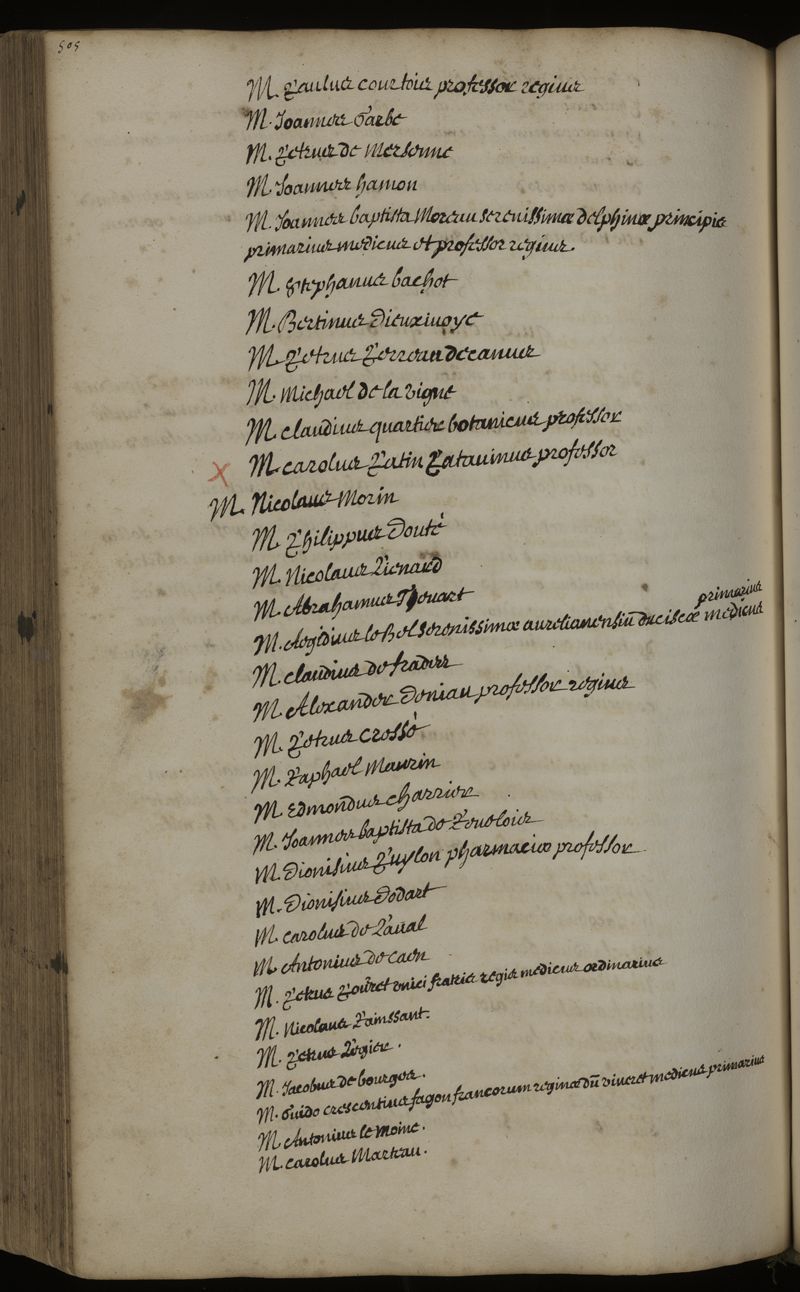 505
M. Paulus courtois professor regius
M. Joannes Garbe
M. Petrus de Mersenne
M. Joannes hamon
M. Joannes baptista Moreau serenissimæ delphinæ principis
primarius medicus et professor regius.
M. Stephanus bachot
M. Bertinus Dieuxiuoye
M. Petrus Perreau decanus
M. Michael de la vigne
M. claudius quartier botanicus professor
M. carolus Patin Patauinus professor
M. Nicolaus Morin
M. Philippus Douté
M. Nicolaus Lienard
M. Abrahamus Thouart
primarius
M. Aegidius le Bel serenissimæ aurelianensiũ ducissæ medicus
M. claudius de frades
M. Alexander Doniau professor regius
M. Petrus cressé
M. Raphael Maurin
M. Edmondus charrier
M. Joannes baptista de
M. Dionisius Puylon pharmaciæ professor
M. Dionisius Dodart
M. carolus de Laual
M. Antonius de caen
M. Petrus vnici fratris regis medicus ordinarius
M. Nicolaus Rainssant.
M. Petrus Legier.
M. Jacobus de bourges.
M. Guido crescentius fagon francorum reginæ dũ viueret medicus primarius
M. Antonius le moine.
M. carolus Marteau.